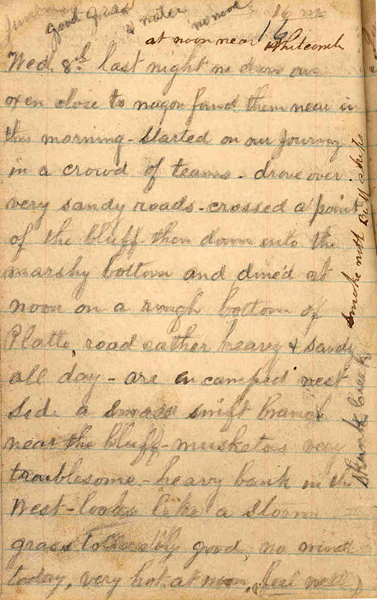 good grass & water no wood 16 m
at noon near Whitcomb
Wed 8th last night no
oxen close to wagon found them near in
this morning - Started on our Journey
in a crowd of teams - drove over
very sandy roads - crossed a point
of the bluff then down into the
marshy bottom and dined at
noon on a rough bottom of
Platte, road rather heavy & sandy
all day - are encamped west
side a small swift branch
near the bluff - musketoes very
troublesome - heavy bank in the
West - looks like a storm
grass tolerably good, no wind
today, very hot at noon, feel well)
Smoke with Buff chips
Skunk Creek